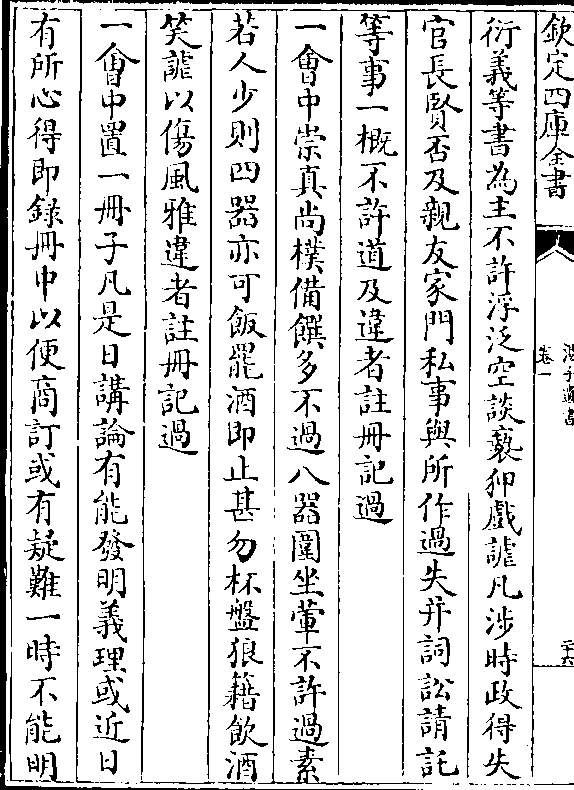 欽定四庫全書
湯子遺書
卷一
二十六
衍義等書為主不許浮泛空談褻狎戲謔凡涉時政得失
官長賢否及親友家門私事與所作過失并詞訟請託
等事一概不許道及違者註冊記過
一會中崇真尚樸備饌多不過八器圍坐葷不許過素
若人少則四器亦可飯罷酒即止甚勿杯盤狼籍飲酒
笑謔以傷風雅違者註冊記過
一會中置一冊子凡是日講論有能發明義理或近日
有所心得即錄冊中以便商訂或有疑難一時不能明